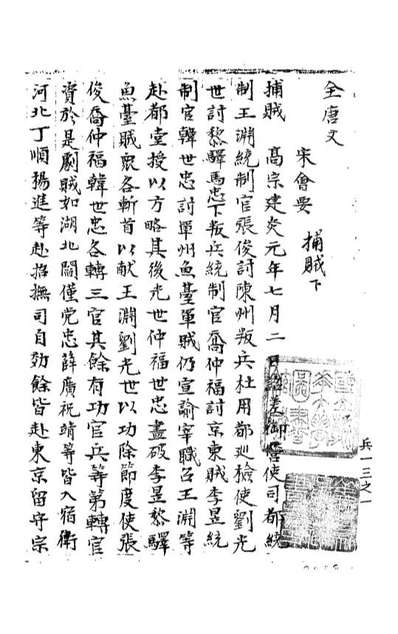 全唐文
宋會要
捕賊下
捕賊　高宗建炎元年七月二日詔差御營使司都統
制王淵統制官張俊討陳州叛兵杜用都廵檢使劉光
世討黎驛馬忠下叛兵統制官喬仲福討京東賊李昱統
制官韓世忠討單州魚臺軍賊仍宣諭宰職召王淵等
赴都堂授以方略其後光世仲福世忠盡破李昱黎驛
魚臺賊衆各斬首以獻王淵劉光世以功除節度使張
俊喬仲福韓世忠各轉三官其餘有功官兵等第轉官
資於是劇賊如湖北閻僅党忠薛廣祝靖等皆入宿衛
河北丁順楊進等赴招撫司自効餘皆赴東京留守宗
兵一三之一